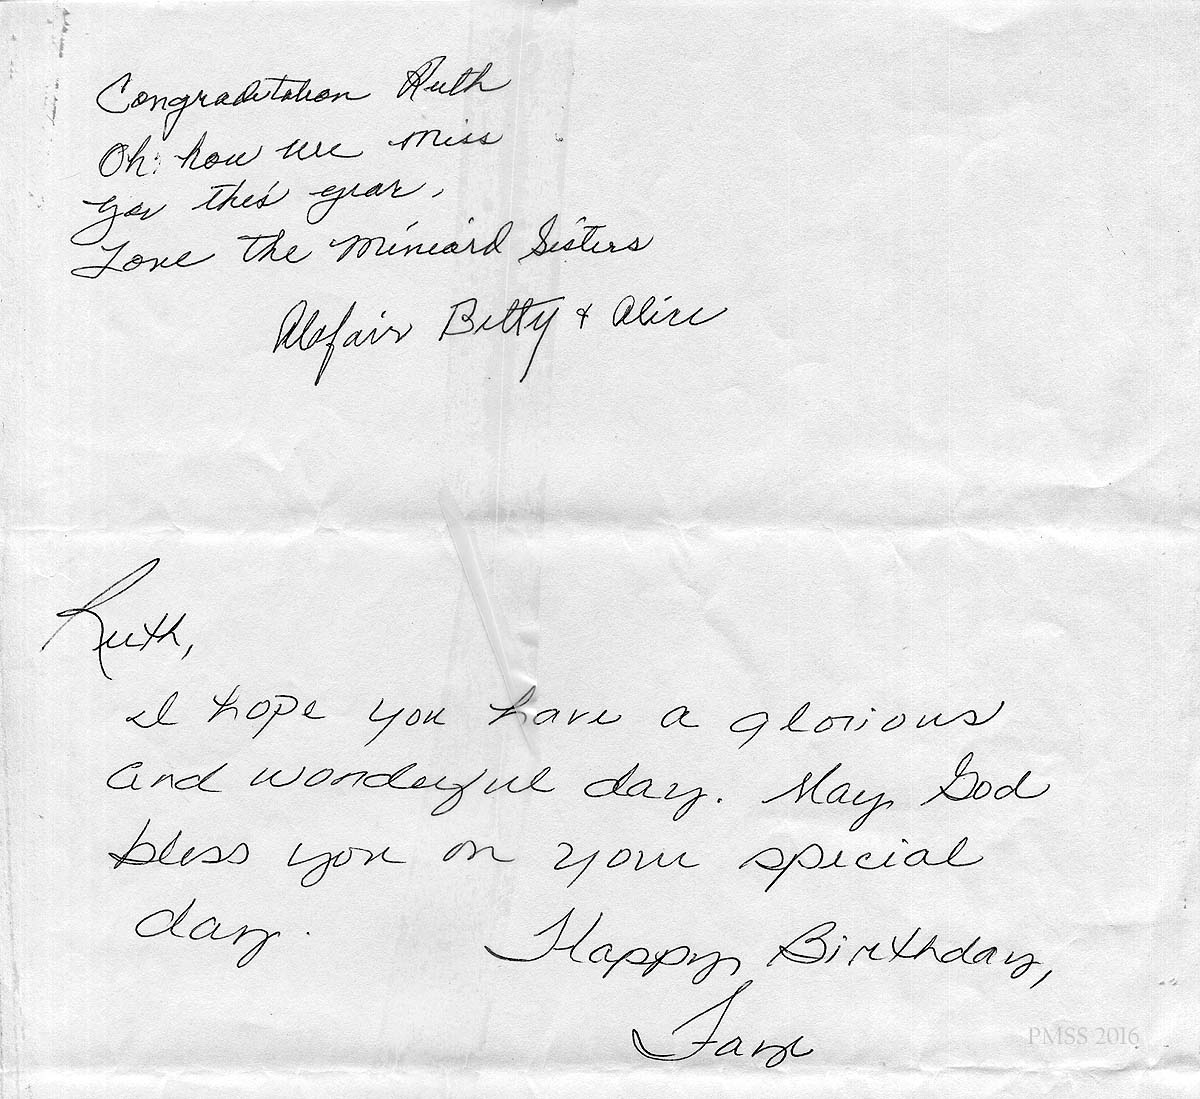 Congradutation Ruth
Oh: how we miss
you this year,
Love the Miniard Sisters
Alafair Betty & Alice
Ruth,
I hope you have a glorious
and wonderful day. May God
bless you on your special
day.
Happy Birthday,
Faye
PMSS 2016